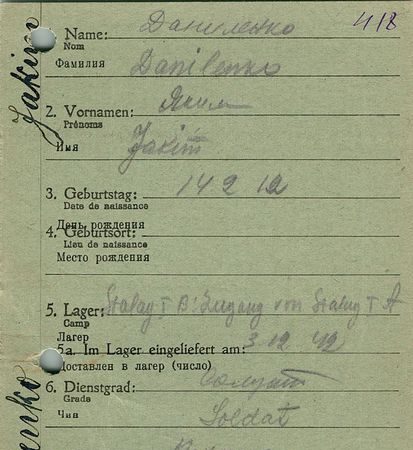 418
1. Name: Даниленко
Nom
Фамилия Danilenko
2. Vornamen: Яким
Prénoms
Имя Jakim
3. Geburtstag: 14 2 12
Date de naissance
День рождения
4. Geburtsort:
Lieu de naissance
Место рождения
5. Lager: Stalag I B: Zugang von Stalag I A
Camp
Лагерь
5a. Im Lager eingeliefert am: 3. 12 42
Доставлен в лагер (число)
6. Dienstgrad: Солдат
Grade
Чин Soldat
Jakim
enko